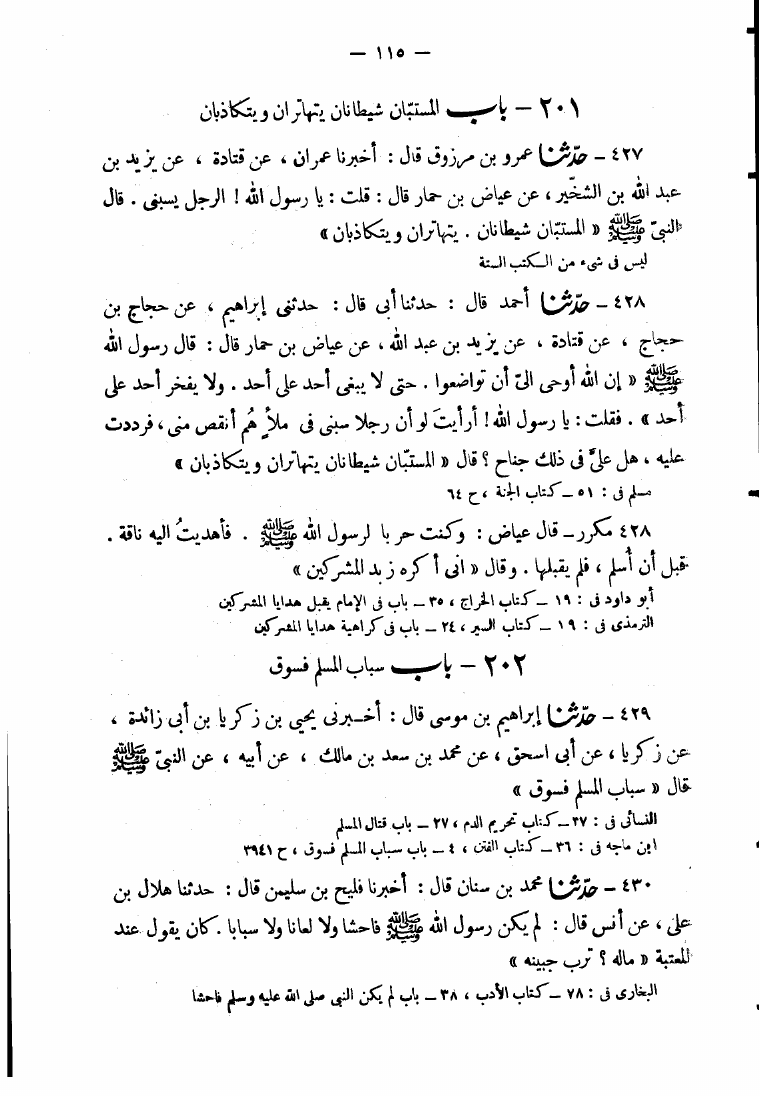 — ١١٥ —
٢٠١ – باب المستبّان شيطانان يتهاتران ويتكاذبان
٤٢٧ – حدّثنا عمرو بن مرزوق قال : أخبرنا عمران ، عن قتادة ، عن يزيد بن
عبد الله بن الشخّير ، عن عياض بن حمار قال : قلت : يا رسول الله ! الرجل يسبنى . قال
النبىّ ﷺ « المستبّان شيطانان . يتهاتران ويتكاذبان »
ليس فى شىء من الكتب الستة
٤٢٨ – حدّثنا أحمد قال : حدثنا أبى قال : حدثنى إبراهيم ، عن حجاج بن
حجاج ، عن قتادة ، عن يزيد بن عبد الله ، عن عياض بن حمار قال : قال رسول الله
ﷺ « إن الله أوحى إلىّ أن تواضعوا . حتى لا يبغى أحد على أحد . ولا يفخر أحد على
أحد » . فقلت : يا رسول الله ! أرأيتَ لو أن رجلا سبنى فى ملأٍ هُم أنقص منى ، فرددت
عليه ، هل علىَّ فى ذلك جناح ؟ قال « المستبّان شيطانان يتهاتران ويتكاذبان »
مسلم فى : ٥١ – كتاب الجنة ، ح ٦٤
٤٢٨ مكرر – قال عياض : وكنت حربا لرسول الله ﷺ . فأهديتُ اليه ناقة .
قبل أن أُسلم ، فلم يقبلها . وقال « انى أكره زبد المشركين »
أبو داود فى : ١٩ – كتاب الخراج ، ٣٥ – باب فى الإمام يقبل هدايا المشركين
الترمذى فى : ١٩ – كتاب السير ، ٢٤ – باب فى كراهية هدايا المشركين
٢٠٢ – باب سباب المسلم فسوق
٤٢٩ – حدّثنا إبراهيم بن موسى قال : أخبرنى يحيى بن زكريا بن أبى زائدة ،
عن زكريا ، عن أبى اسحق ، عن محمد بن سعد بن مالك ، عن أبيه ، عن النبىّ ﷺ
قال « سباب المسلم فسوق »
النسائى فى : ٣٧ – كتاب تحريم الدم ، ٢٧ – باب قتال المسلم
ابن ماجه فى : ٣٦ – كتاب الفتن ، ٤ – باب سباب المسلم فسوق ، ح ٣٩٤١
٤٣٠ – حدّثنا محمد بن سنان قال : أخبرنا فليح بن سليمن قال : حدثنا هلال بن
على ، عن أنس قال : لم يكن رسول الله ﷺ فاحشا ولا لعانا ولا سبابا . كان يقول عند
المعتبة « ماله ؟ ترب جبينه »
البخارى فى : ٧٨ – كتاب الأدب ، ٣٨ – باب لم يكن النبى صلى الله عليه وسلم فاحشا